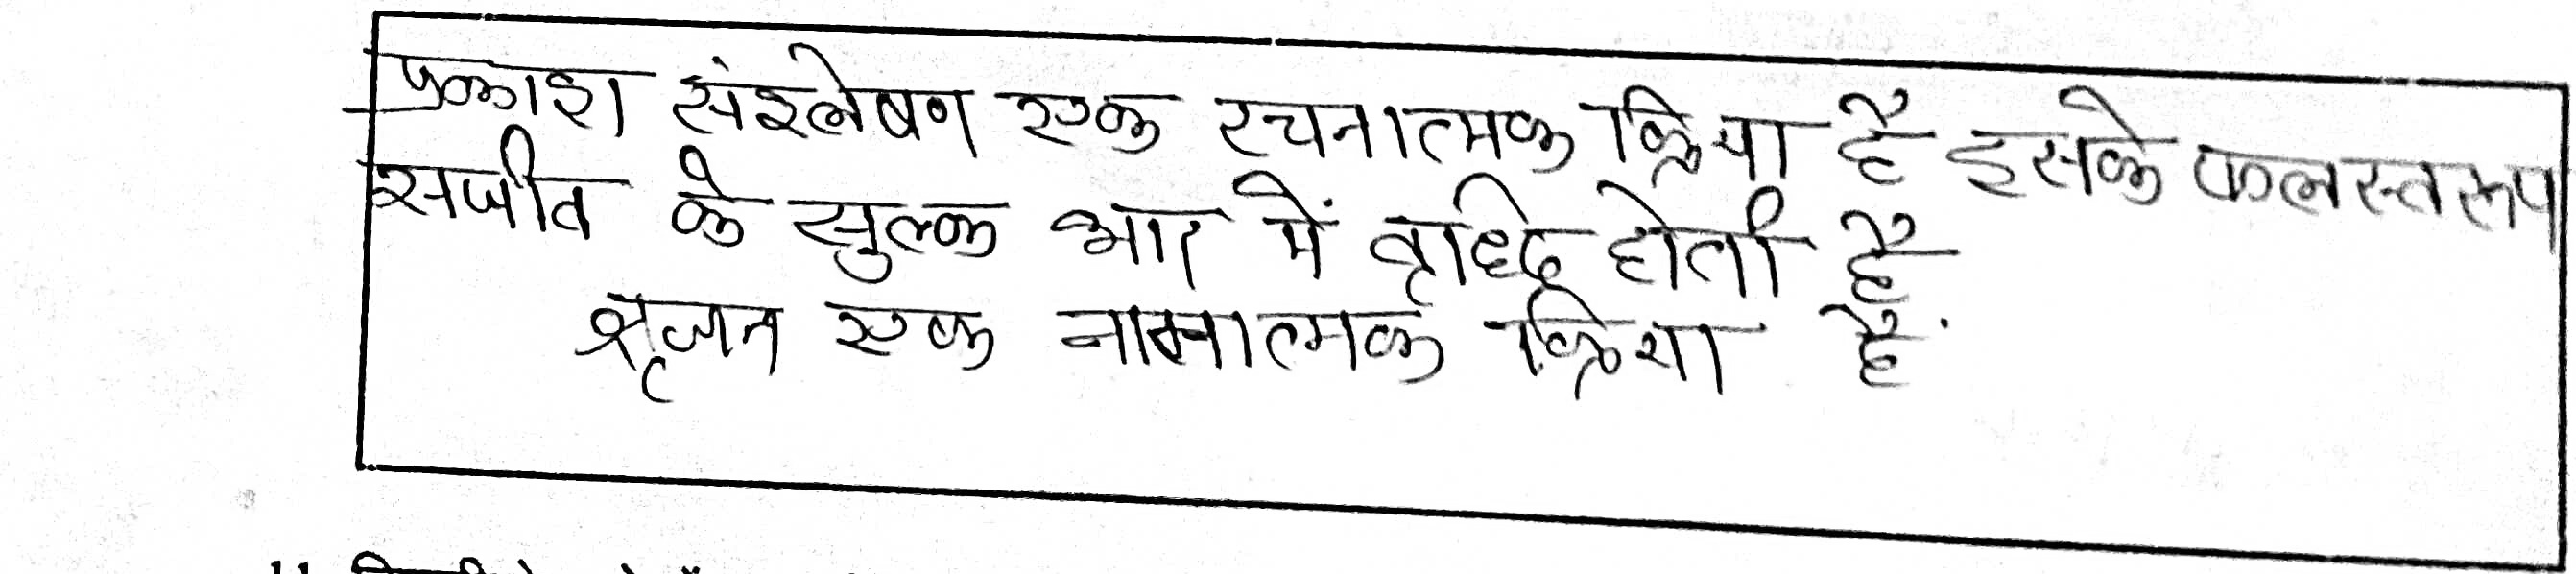 प्रकाश संश्लेषण एक रचनात्मक क्रिया है इसके फलस्वरूप
सजीव के सुल्क भार में वृद्धि होती है
सृजन एक नासात्मक क्रिया है.